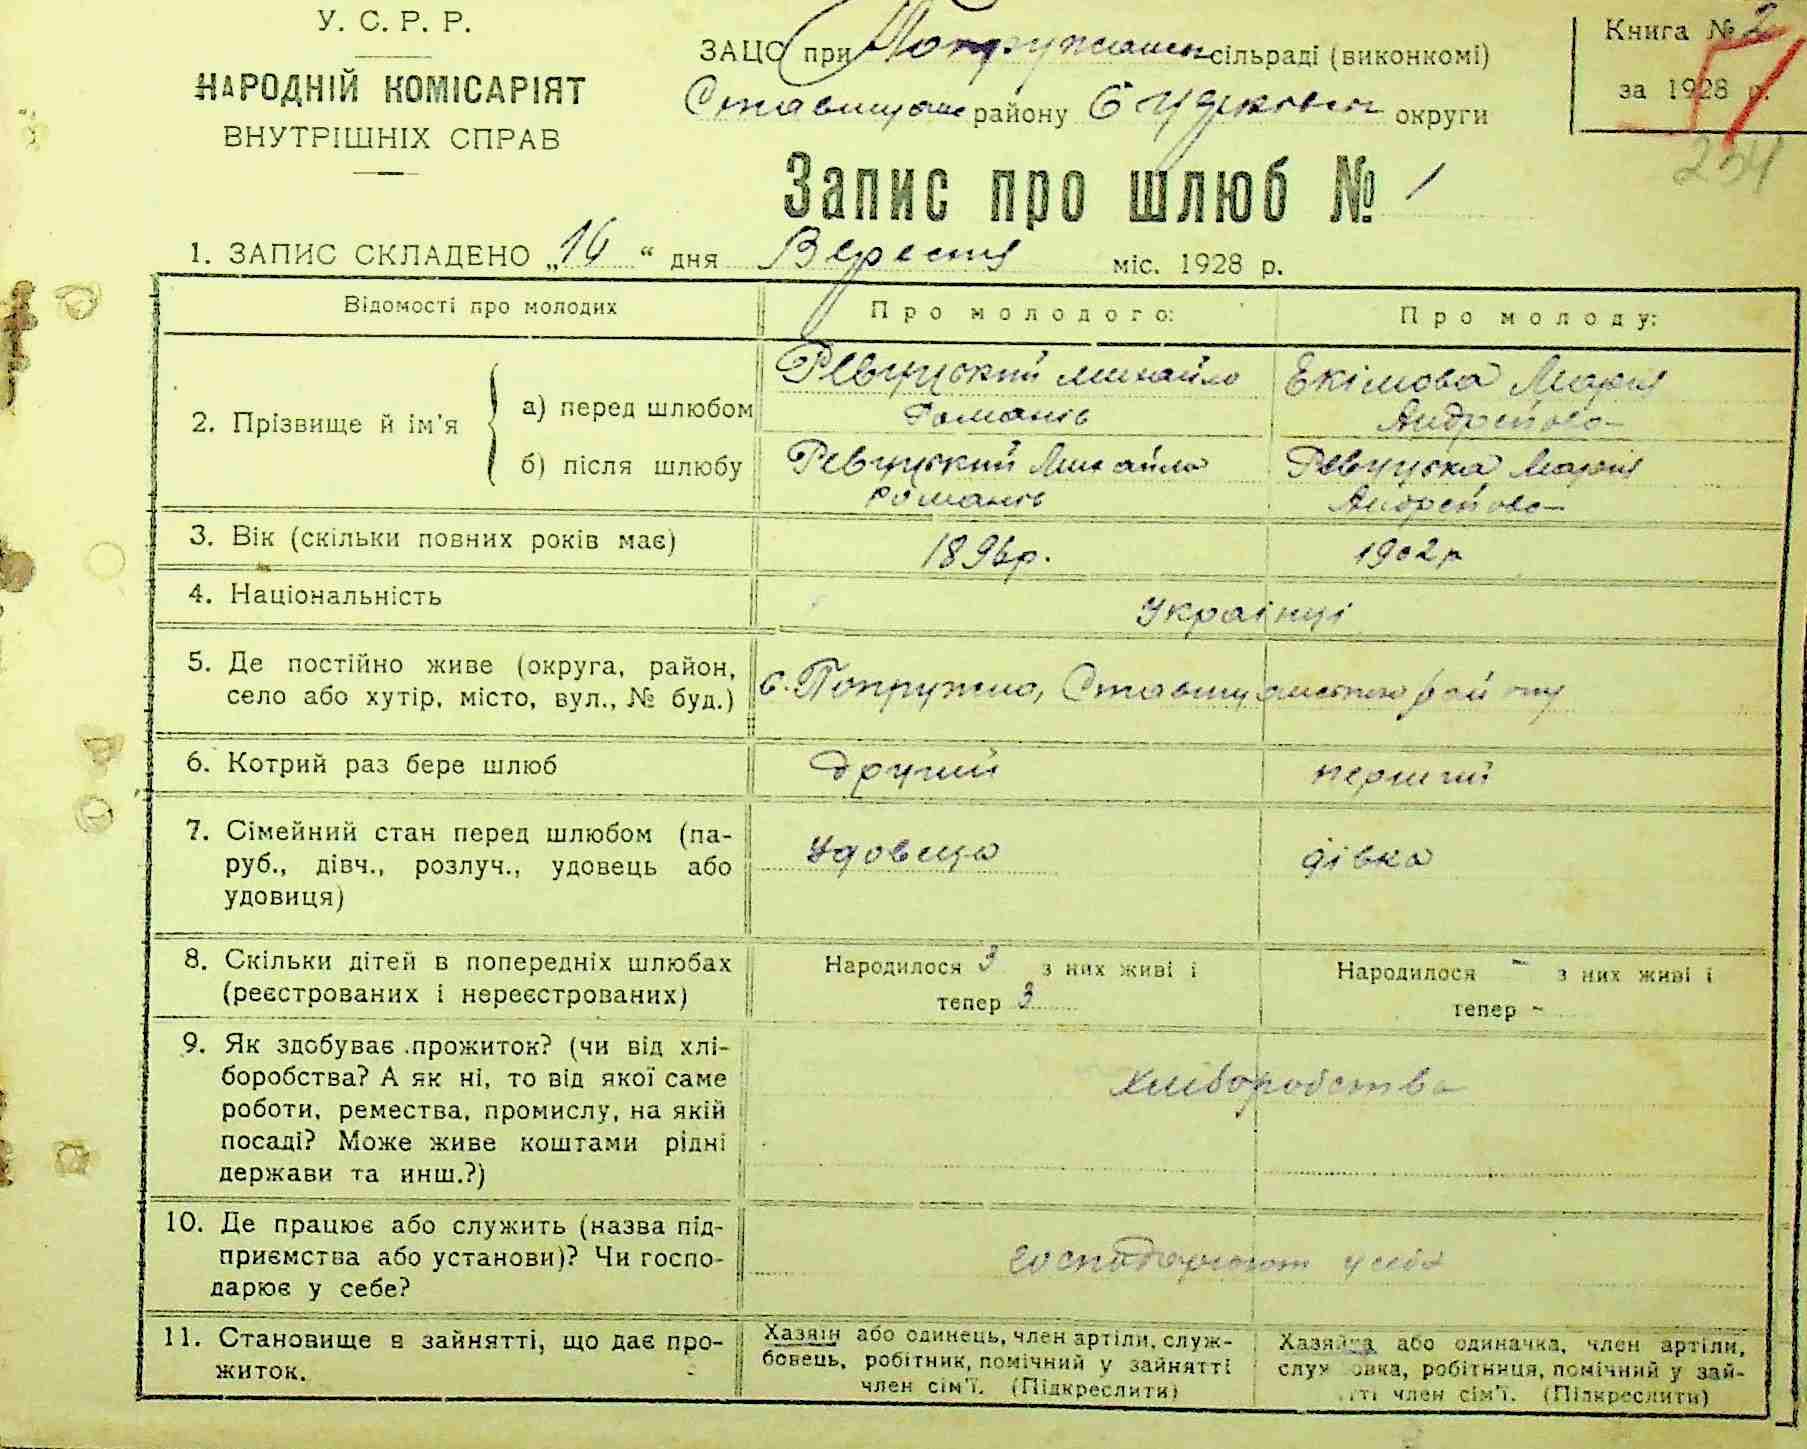 У. С. Р. Р.
НАРОДНІЙ КОМІСАРІЯТ
ВНУТРІШНІХ СПРАВ
ЗАЦС при сільраді (виконкомі)
району округи
Книга № 2
за 1928 р.
51
234
Запис про шлюб № 1
1. ЗАПИС СКЛАДЕНО „16“ дня Вересня міс. 1928 р.
Відомості про молодих
Про молодого:
Про молоду:
2. Прізвище й ім'я
а) перед шлюбом
Ревуцский Михайло
Романів
Екімова Марія
Андреївна
б) після шлюбу
Ревуцский Михайло
Романів
Ревуцска Марія
Андреївна
3. Вік (скільки повних років має)
1896р.
1902р
4. Національність
Українці
5. Де постійно живе (округа, район,
село або хутір, місто, вул., № буд.)
с. Попружна, району
6. Котрий раз бере шлюб
другий
перший
7. Сімейний стан перед шлюбом (па-
руб., дівч., розлуч., удовець або
удовиця)
удовець
дівка
8. Скільки дітей в попередніх шлюбах
(реєстрованих і нереєстрованих)
Народилося 3 з них живі і
тепер 3
Народилося - з них живі і
тепер -
9. Як здобуває прожиток? (чи від хлі-
боробства? А як ні, то від якої саме
роботи, ремества, промислу, на якій
посаді? Може живе коштами рідні
держави та инш.?)
Хліборобства
10. Де працює або служить (назва під-
приємства або установи)? Чи госпо-
дарює у себе?
господарюють у себе
11. Становище в зайнятті, що дає про-
житок.
Хазяїн або одинець, член артіли, служ-
бовець, робітник, помічний у зайнятті
член сім'ї. (Підкреслити)
Хазяйка або одиначка, член артіли,
службовка, робітниця, помічний у зай-
нятті член сім'ї. (Підкреслити)